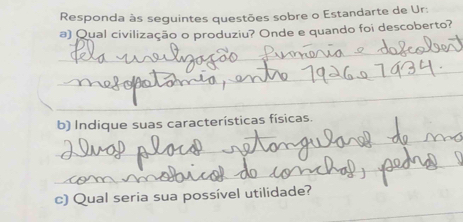 Responda às seguintes questões sobre o Estandarte de Ur:
a) Qual civilização o produziu? Onde e quando foi descoberto?
Pela civilização sumeria e descobert
mesopotâmia, entre 1926 e 1934.
b) Indique suas características físicas.
Duas placas retangulares de ma
com mosaicos de conchas, pedras
c) Qual seria sua possível utilidade?